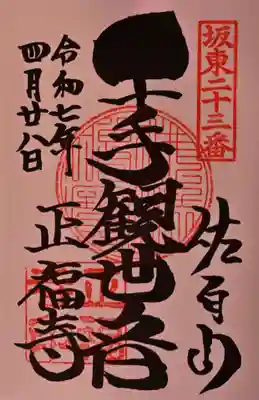 坂東二十三番
佐白山
千手観世音
正福寺
令和七年
四月廿八日